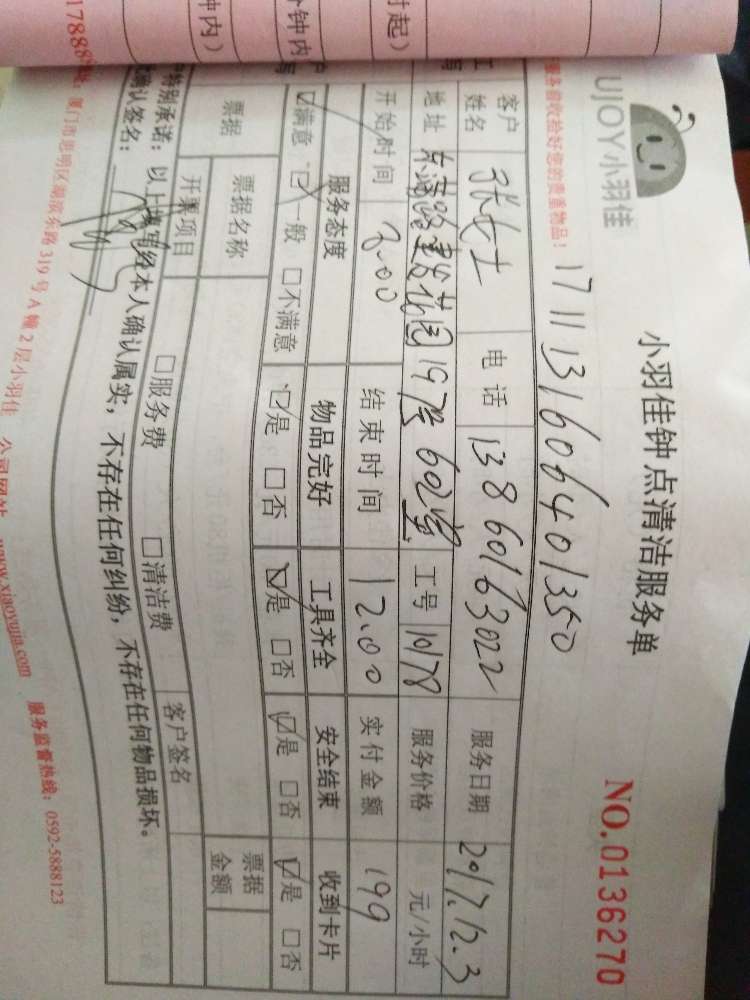 起)
钟内
钟内)
UJOY小羽佳
小羽佳钟点清洁服务单
NO.0136270
服务前收拾好您的贵重物品!
17111316064013 50
客户姓名 张女士 电话 13860163022 服务日期 2017.12.3
地址 东浦路建发花园197号602室 工号 1078 服务价格 元/小时
开始时间 8.00 结束时间 12.00 实付金额 199
服务态度 物品完好 工具齐全 安全结束 收到卡片
☑满意 ☑一般 □不满意 ☑是 □否 ☑是 □否 ☑是 □否 ☑是 □否
票据 票据名称 票据金额
开票项目 □服务费 □清洁费 客户签名
特别承诺:以上填写经本人确认属实,不存在任何纠纷,不存在任何物品损坏。
确认签名:
厦门市思明区湖滨东路319号A幢2层小羽佳 公司网站 www.xiaoyujia.com 服务监督热线:0592-5888123